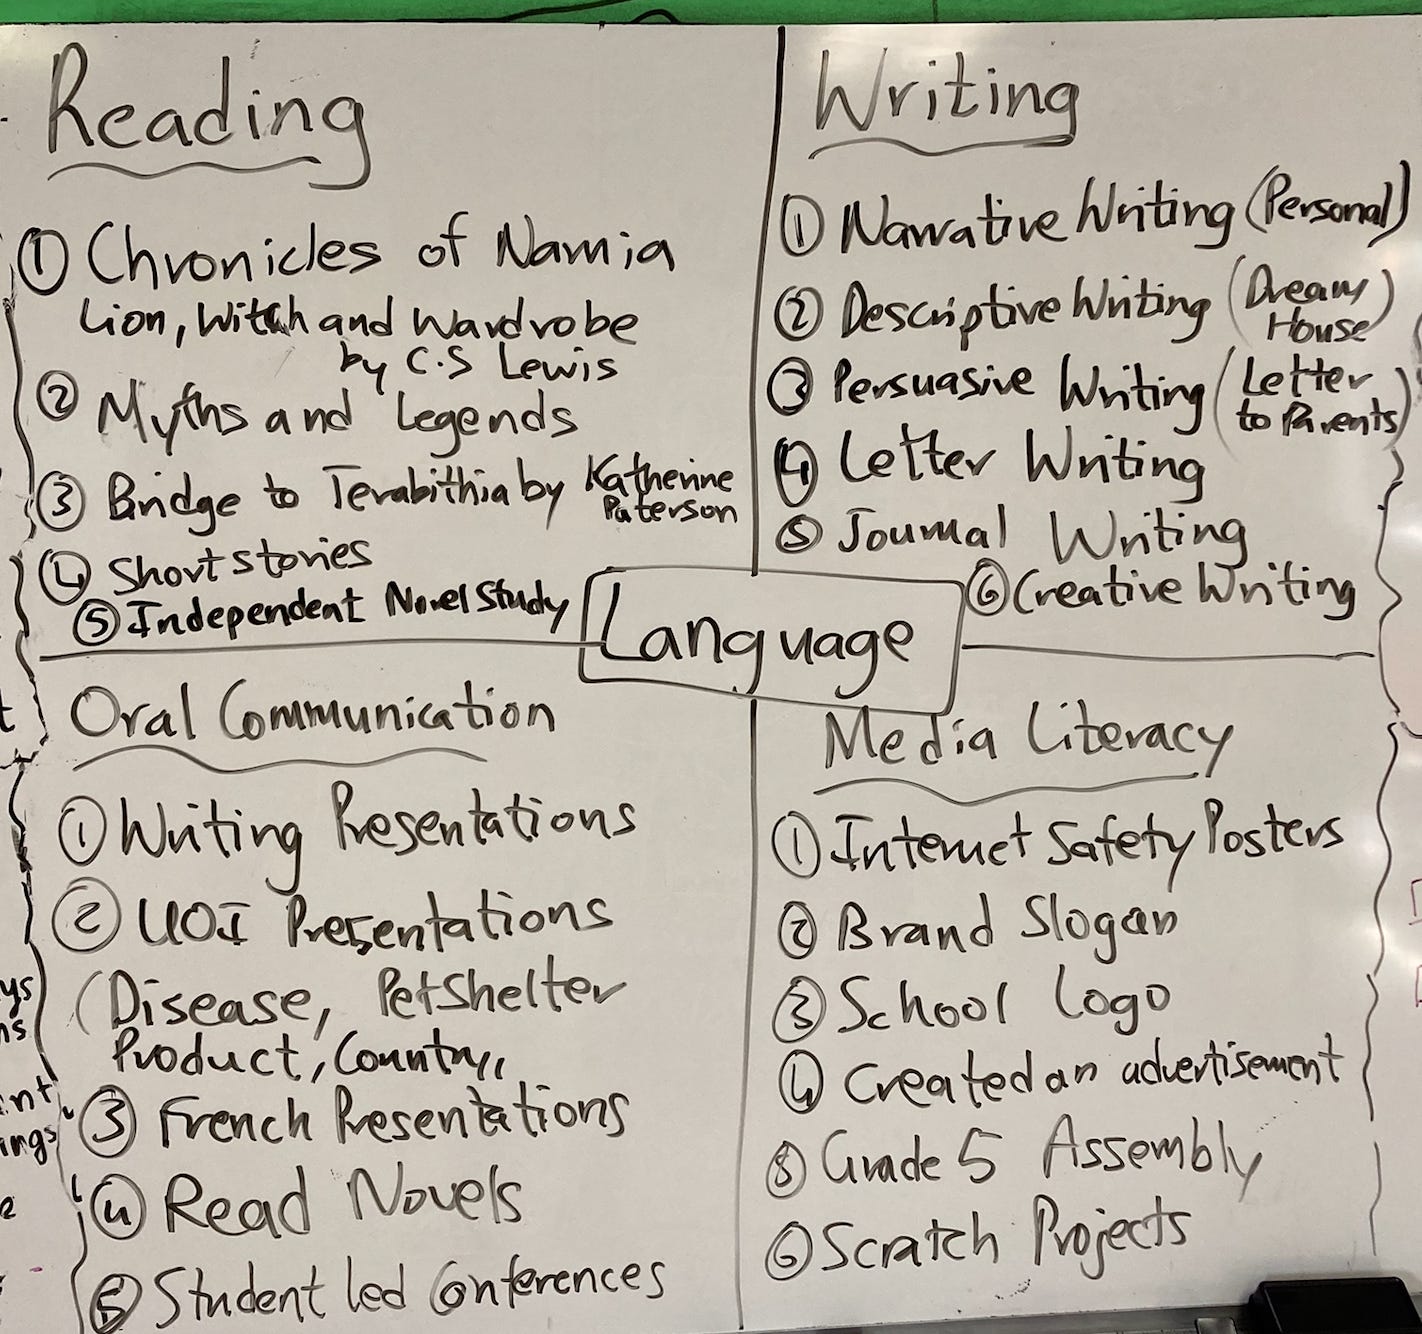 Reading
① Chronicles of Narnia
Lion, Witch and Wardrobe
by C.S Lewis
② Myths and Legends
③ Bridge to Terabithia by Katherine
Paterson
④ Short stories
⑤ Independent Novel Study
Writing
① Narrative Writing (Personal)
② Descriptive Writing (Dream
House)
③ Persuasive Writing (Letter
to Parents)
④ Letter Writing
⑤ Journal Writing
⑥ Creative Writing
Language
Oral Communication
① Writing Presentations
② UOI Presentations
(Disease, Pet Shelter
Product, Country,,
③ French Presentations
④ Read Novels
⑤ Student led Conferences
Media Literacy
① Internet Safety Posters
② Brand Slogan
③ School Logo
④ Created an advertisement
⑤ Grade 5 Assembly
⑥ Scratch Projects